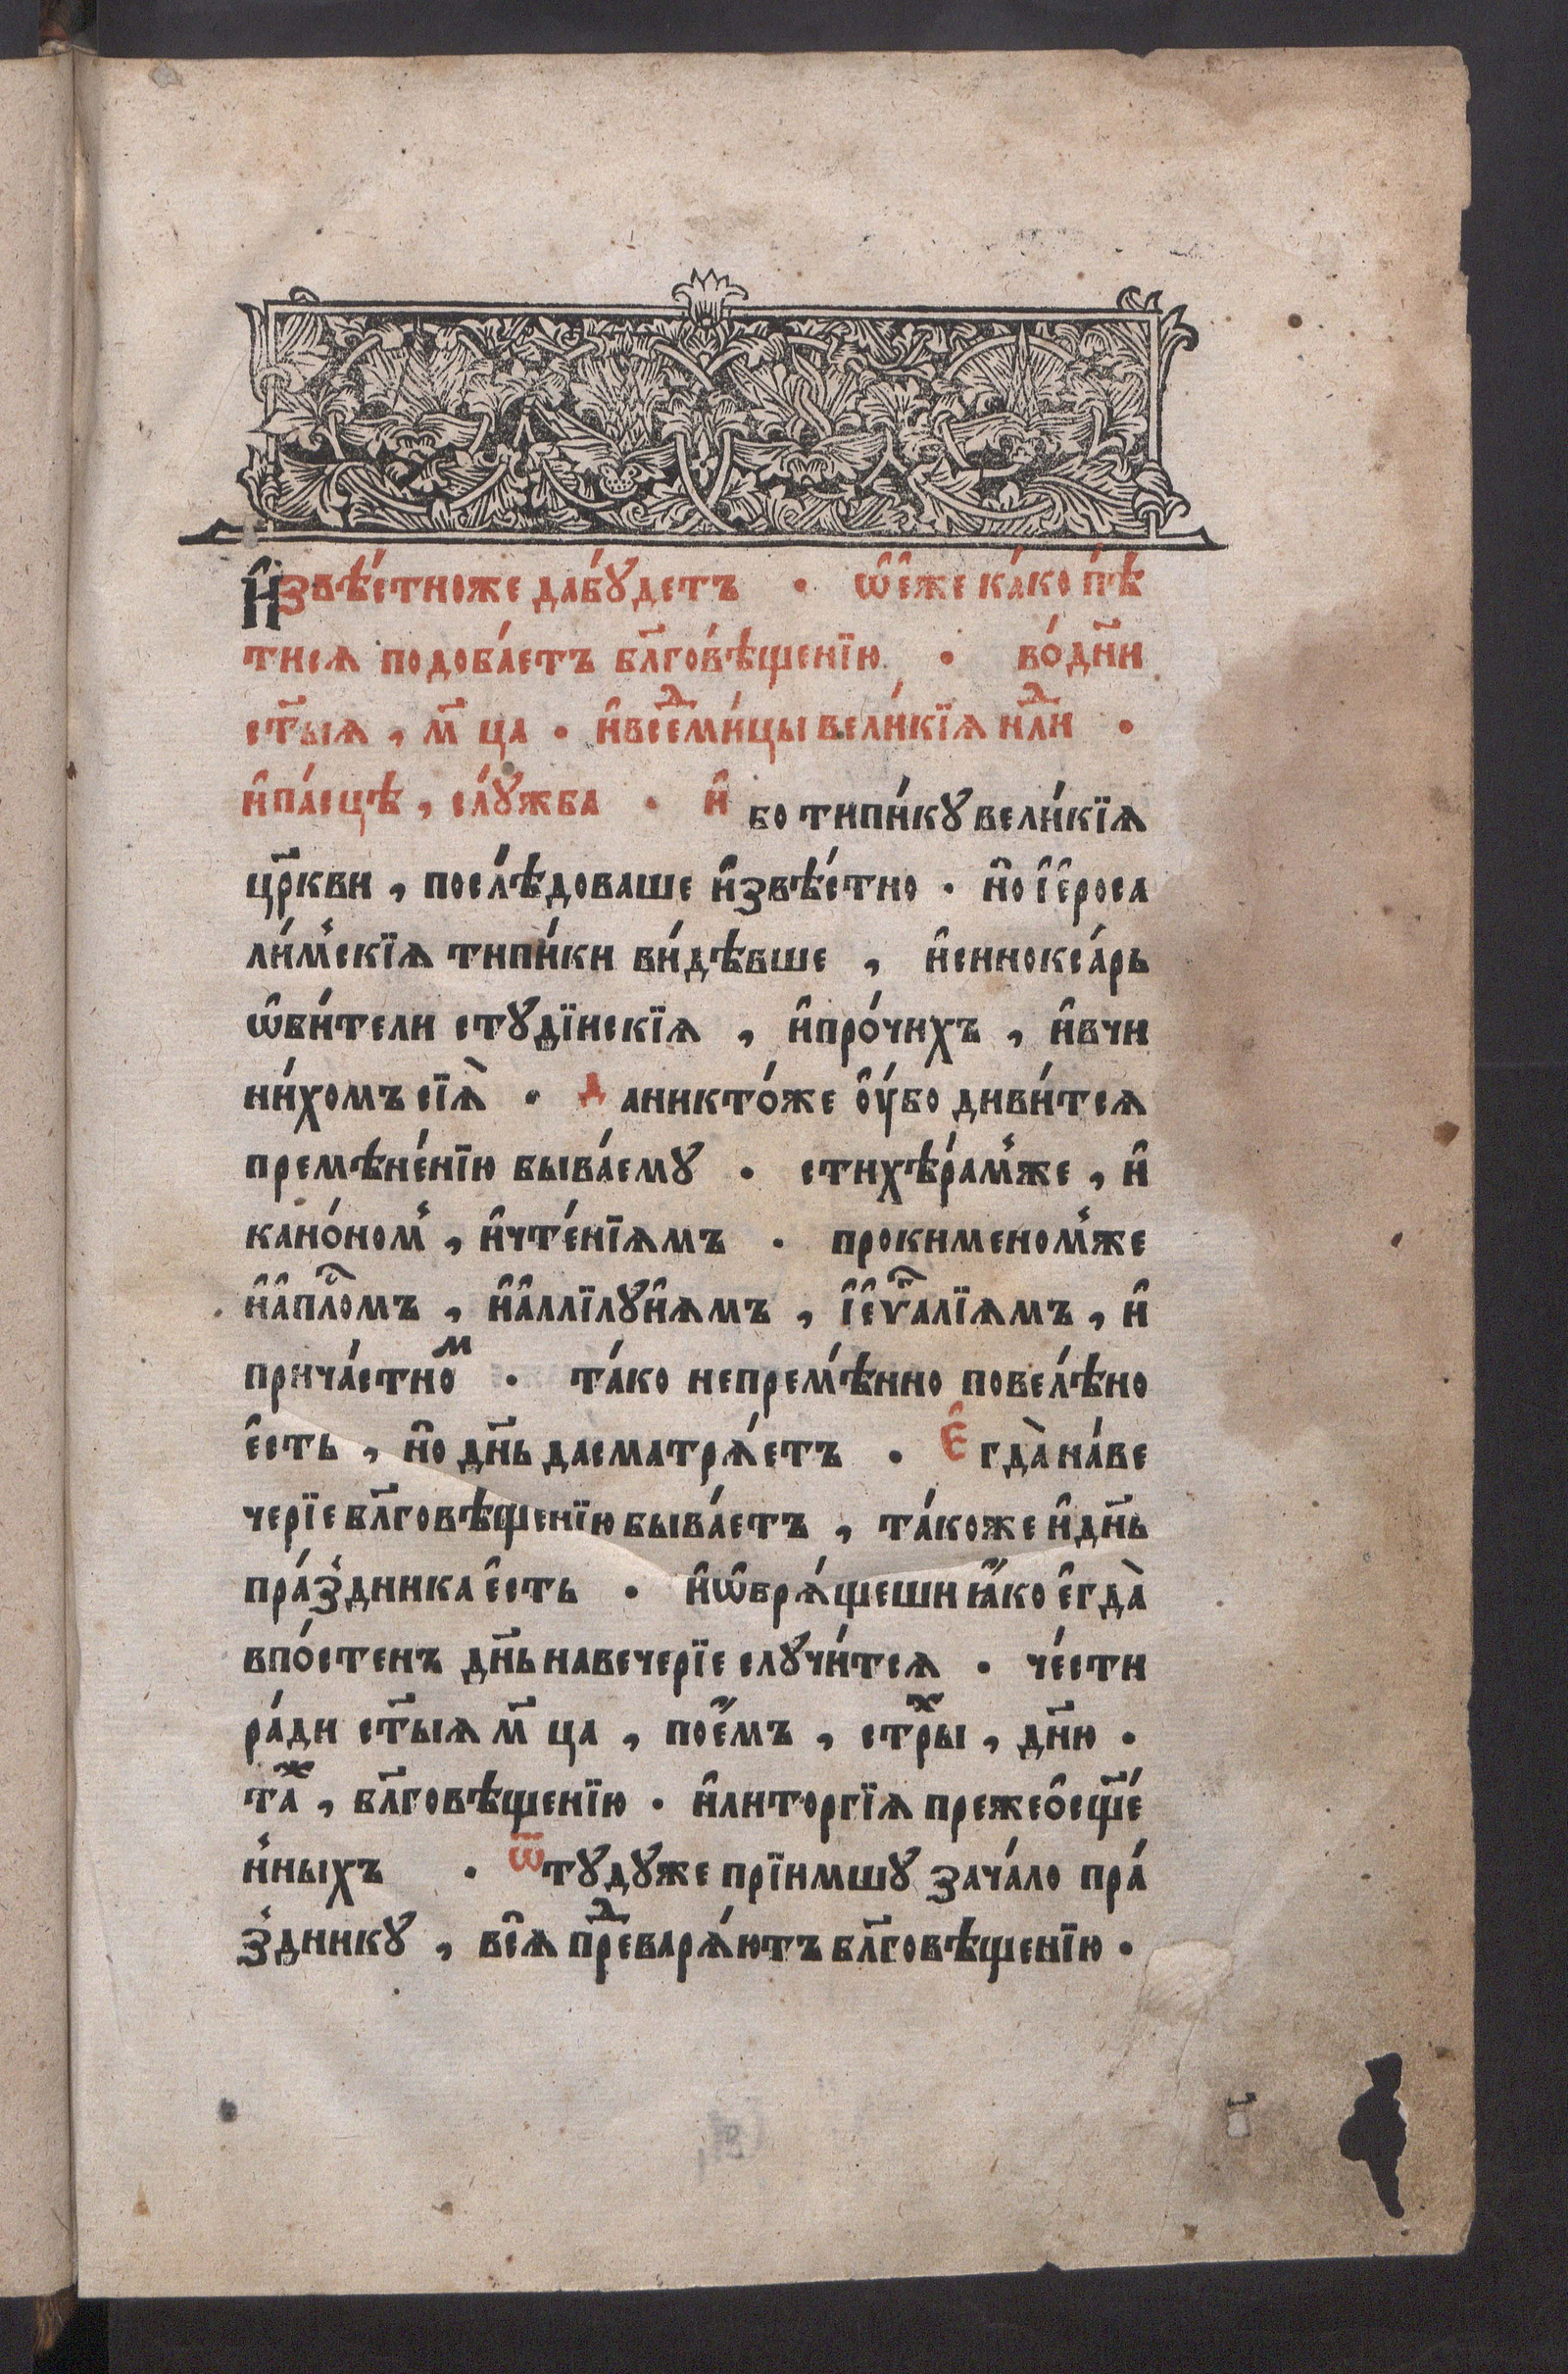 И҆звѣ́стноже дабꙋ́детъ · ѡ҆є҆́же ка́ко пѣ́
тисѧ подоба́етъ бл҃говѣ́щенїю · во́дн҃и
ст҃ыѧ , м҃ ца · и҆всеⷣми́цы вели́кїѧ нⷣли ·
и҆па́сцѣ , слꙋ́жба · и҆ бо типи́кꙋ вели́кїѧ
цр҃кви , послѣ́доваше и҆звѣ́стно · но і҆є҆роса
ли́мскїѧ типи́ки ви́дѣвше , и҆сннокса́рь
ѡ҆би́тели стꙋдїискїѧ , и҆про́чихъ , и҆вчи
ни́хомъ сїѧ̀ · Даникто́же ᲂу҆́бо диви́тсѧ
премѣне́нїю быва́емꙋ · стихѣ́рамже , и҆
кано́ном , и҆чте́нїѧмъ · прокименомже
и҆а҆пⷭ҇ломъ , и҆а҆ллїлꙋи҆ѧмъ , і҆є҆ѵⷢ҇алїѧмъ , и҆
прича́стноⷨ · та́ко непремѣ́нно повелѣ́но
є҆сть , но дн҃ь дасматрѧ́етъ · Є҆гда̀ на́ве
черїе бл҃говѣ́щенїю быва́етъ , та́коже и҆дн҃ь
пра́здника є҆сть · и҆ѡ҆брѧ́щеши ꙗ҆́ко є҆гда̀
впо́стенъ дн҃ь навечерїе слꙋчи́тсѧ · че́сти
ра́ди ст҃ыѧ м҃ ца , пое҆́мъ , стрⷯы , дн҃ю ·
таⷤ , бл҃говѣ́щенїю · и҆литоргїѧ прежеѻ҆сщ҃е́
нныхъ · Ѿтꙋдꙋже прїимшꙋ зача́ло пра́
здникꙋ , всѧ̑ преⷣварѧ́ютъ бл҃говѣ́щенїю ·